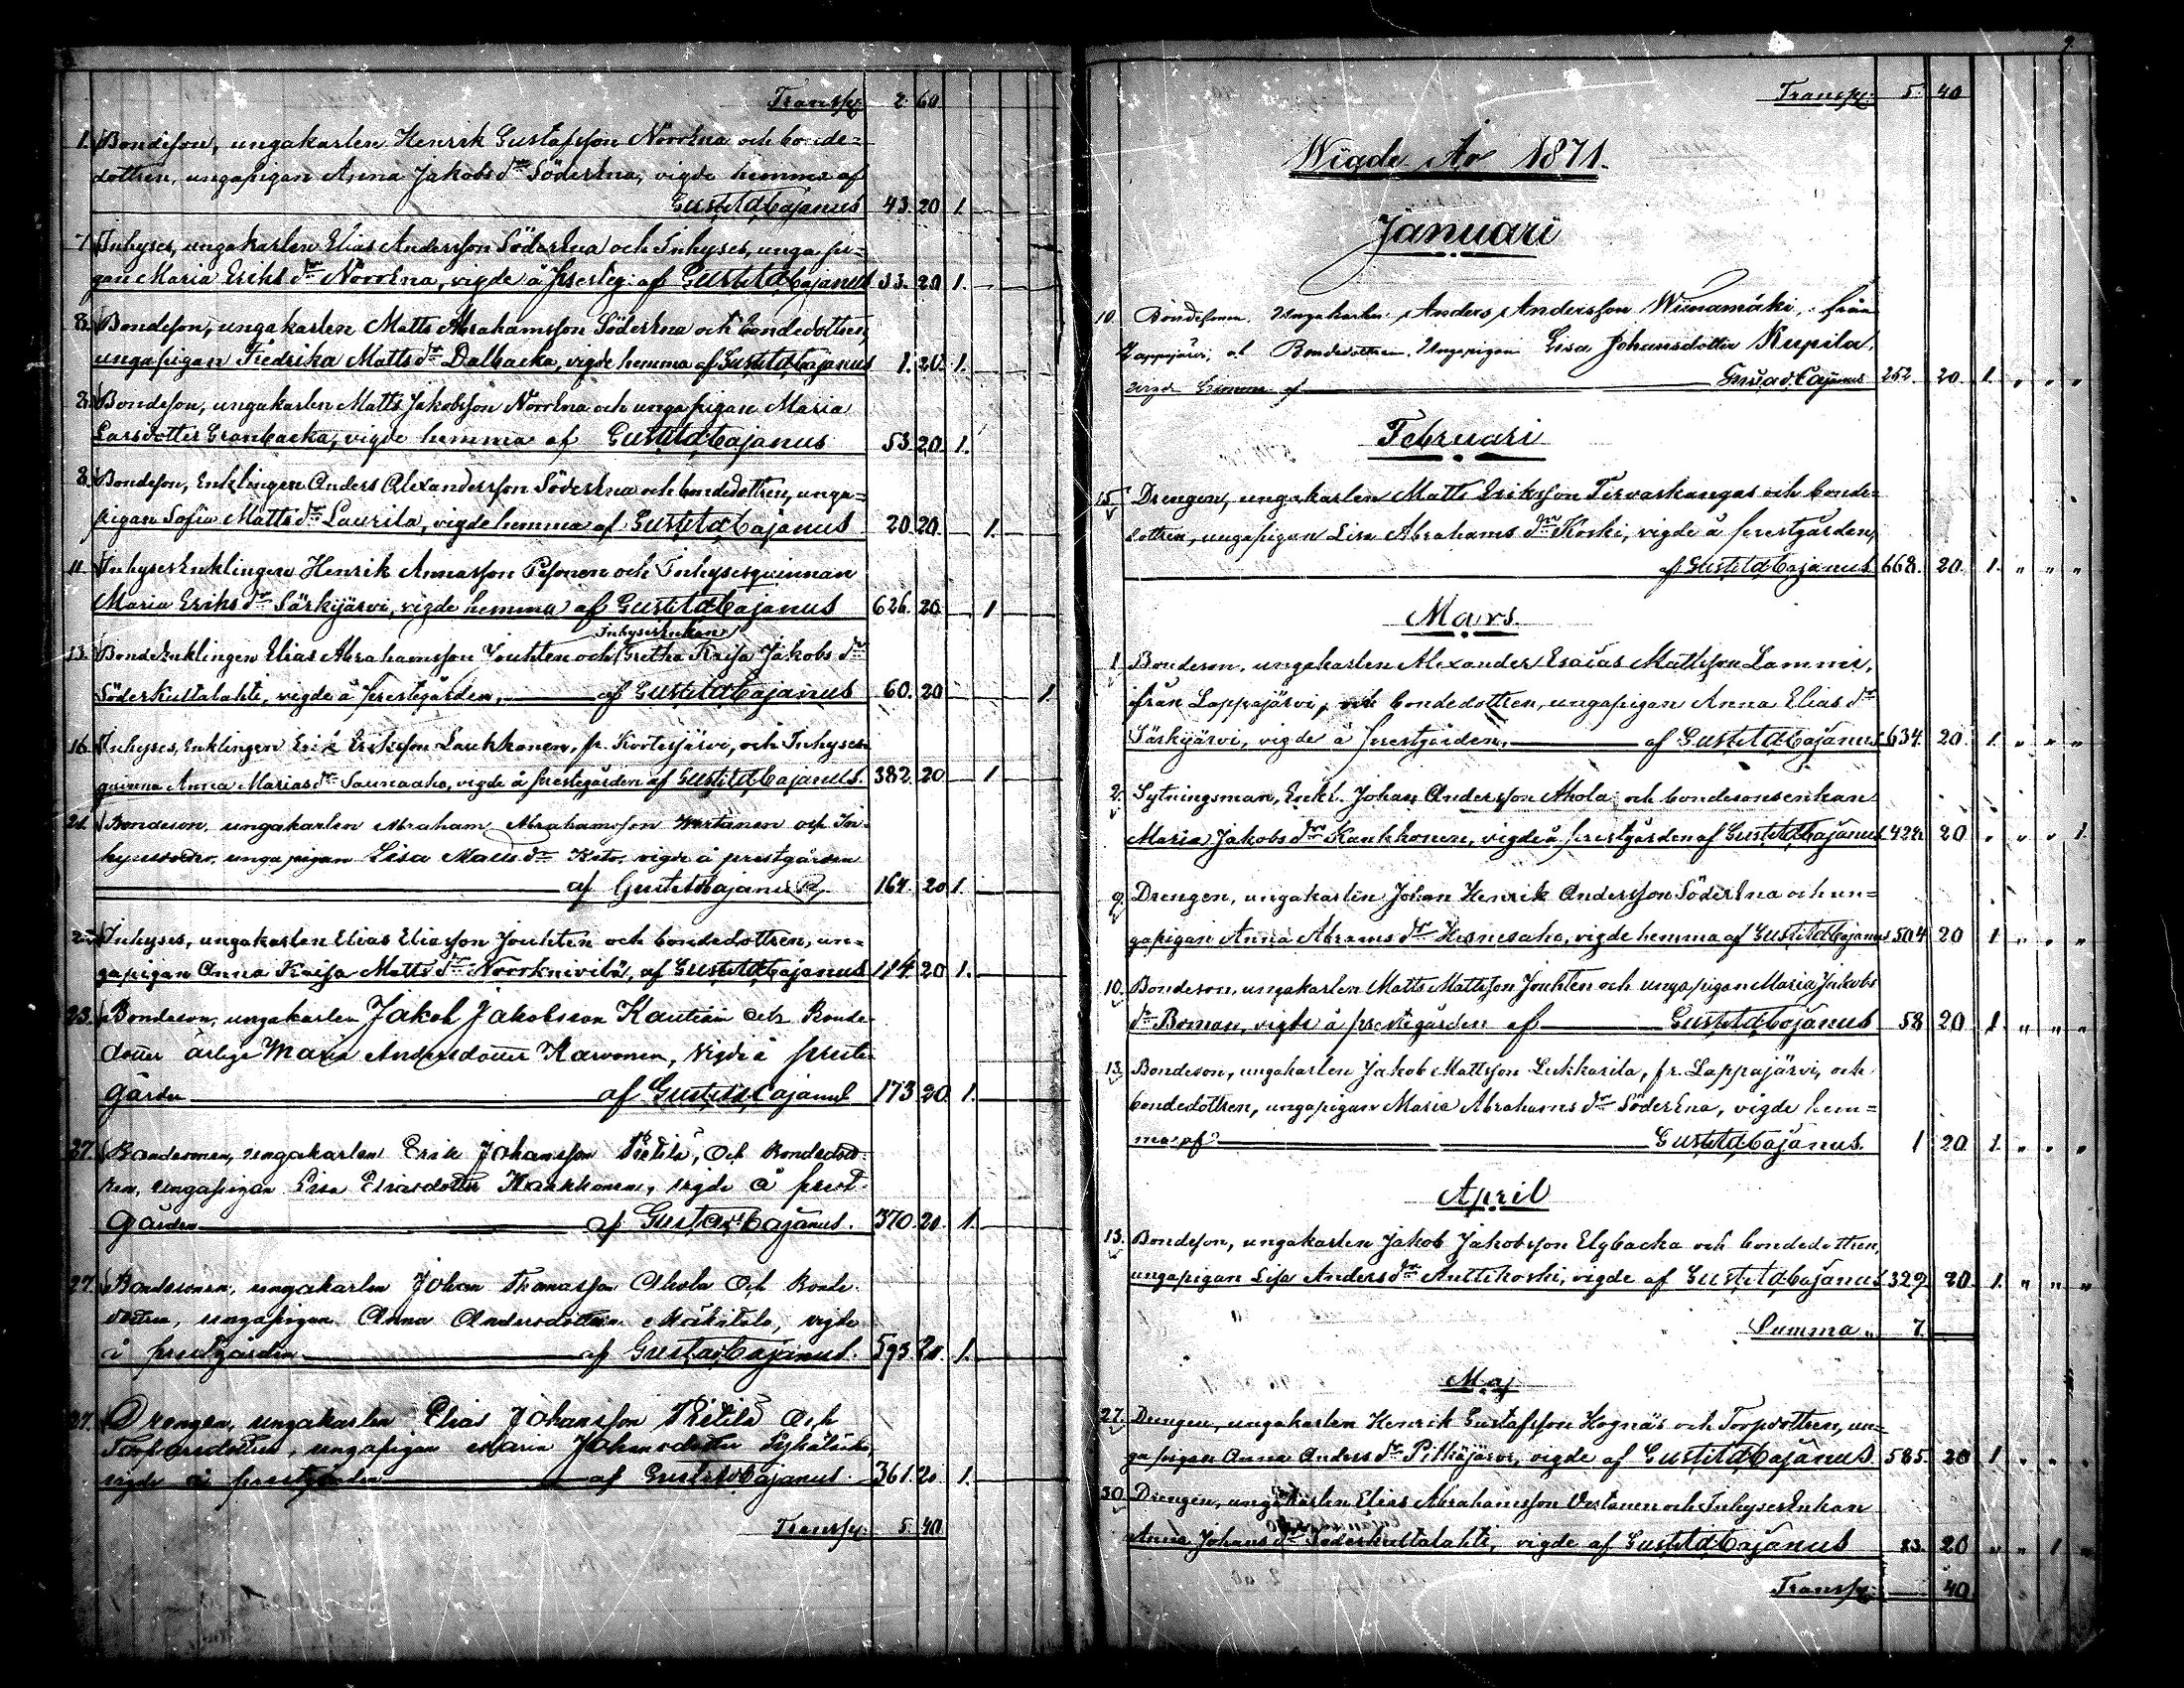 Transp. 2. 60
1. Bondeson, ungakarlen Henrik Gustafsson Norrena och bonde=
dottren, ungapigan Anna Jakobs dr Söderena, vigde hemma af
Gust. Ad. Cajanus 43. 20 1.
7. Inhyses, ungakarlen Elias Andersson Söderena och Inhyses, unga pi=
gan Maria Eriks dr Norrena, vigde å presteg. af Gust. Ad. Cajanus 33. 20 1.
8. Bondeson, ungakarlen Matts Abrahamsson Söderena och bondedottren,
ungapigan Fredrika Matts dr Dalbacka, vigde hemma af Gust. Ad. Cajanus 1. 20. 1.
Bondeson, ungakarlen Matts Jakobsson Norrena och ungapigan Maria
Larsdotter Granbacka, vigde hemma af Gust. Ad. Cajanus 53 20. 1.
8. Bondeson, Enklingen Anders Alexandersson Söderena och bondedottren, unga=
pigan Sofia Matts dr Laurila, vigde hemma af Gust. Ad. Cajanus 20 20. 1.
11. InhysesEnklingen Henrik Annasson Pesonen och Inhysesquinnan
Maria Eriks dr Särkijärvi, vigde hemma af Gust. Ad. Cajanus 626. 20 1
InhysesEnkan
13. BondeEnklingen Elias Abrahamsson Jouhten och Gretha Kaisa Jakobs dr
Söderkultalahti, vigde å prestgården, af Gust. Ad. Cajanus 60. 20 1.
16. Inhyses, Enklingen Erik Eriksson Laukkonen, fr. Kortesjärvi, och Inhyses
quinna Anna Marias dr Saunaaho, vigde å prestegården af Gust. Ad. Cajanus. 382. 20 1
21. Bondeson, ungakarlen Abraham Abrahamsson Wertanen och In-
ungapigan Lisa Matts dr Keto, vigde å prestgården
af Gust. Ad. Cajanus 164. 20 1.
Inhyses, ungakarlen Elias Eliasson Jouhten och bondedottren, un=
gapigan Anna Kaisa Matts dr Norrknivilä, af Gust. Ad. Cajanus 114. 20 1.
23. Bondeson, ungakarlen Jakob Jakobsson Kautiain och Bonde
dotter ärliga Maria Andersdotter Karvonen, Vigde å preste
gården af Gust. Ad. Cajanus 173 20 1.
27. Bondesonen, ungakarlen Erik Johansson Pietilä, och Bondedott-
ren, ungapigan Lisa Eliasdotter Kaukkonen, vigde å prest
gården af Gustav Cajanus. 370. 20. 1.
27. Bondesonen, ungakarlen Johan Thomasson Ahola och Bonde
dottren, ungapigan Anna Andersdotter Mäkitalo, vigde
i prestgården af Gustav Cajanus. 593. 20. 1.
27. Drengen, ungakarlen Elias Johansson Pietilä och
Torparedottren, ungapigan Maria Johansdotter
vigde å prestgården af Gustav Cajanus. 361. 20. 1.
Transp. 5. 40
9.
Transp. 5. 40
Wigde År 1871.
Januari
10. Bondesonen Ungakarlen Anders Andersson Wiinamäki, från
Lappajärvi, och Bondedottren Ungapigan Lisa Johansdotter Kupila,
vigd hemma af Gustav Cajanus 252. 20. 1. " " "
Februari
15. Drengen, ungakarlen Matts Eriksson Tervaskangas och bonde=
dottren, ungapigan Lisa Abrahams dr Koski, vigde å prestgården,
af Gust. Ad. Cajanus 668. 20. 1. " " "
Mars.
1. Bondeson, ungakarlen Alexander Esaias Mattsson Lammi,
ifrån Lappajärvi, och bondedottren, ungapigan Anna Elias dr
Särkijärvi, vigde å prestgården, af Gust. Ad. Cajanus 634. 20. 1. " " "
2. Sytningsman, Enkl. Johan Andersson Ahola och bondesonsenkan
Maria Jakobs dr Kaukkonen, vigde å prestgården af Gust. Ad. Cajanus 424. 20 " " " 1.
9. Drengen, ungakarlen Johan Henrik Andersson Söderena och un=
gapigan Anna Abrams dr Hernesaho, vigde hemma af Gust. Ad. Cajanus 504 20 1 " " "
10. Bondeson, ungakarlen Matts Mattsson Jouhten och ungapigan Maria Jakobs
dr Boman, vigde å prestegården af Gust. Ad. Cajanus 58 20 1 " " "
13. Bondeson, ungakarlen Jakob Mattsson Lukkarila, fr. Lappajärvi, och
bondedottren, ungapigan Maria Abrahams dr Söderena, vigde hem=
ma af Gust. Ad. Cajanus. 1 20 1. " " "
April
13. Bondeson, ungakarlen Jakob Jakobsson Elgbacka och bondedottren,
ungapigan Lisa Anders dr Anttikoski, vigde af Gust. Ad. Cajanus 329 20 1. " " "
Summa " 7.
Maj
27. Drengen, ungakarlen Henrik Gustafsson Hognäs och Torpdottren, un=
gapigan Anna Anders dr Pitkäjärvi, vigde af Gust. Ad. Cajanus. 585. 20 1 " " "
30. Drengen, ungakarlen Elias Abrahamsson Vertanen och InhysesEnkan
Anna Johans dr Söderkultalahti, vigde af Gust. Ad. Cajanus 83. 20 " " 1 "
Transp. 40